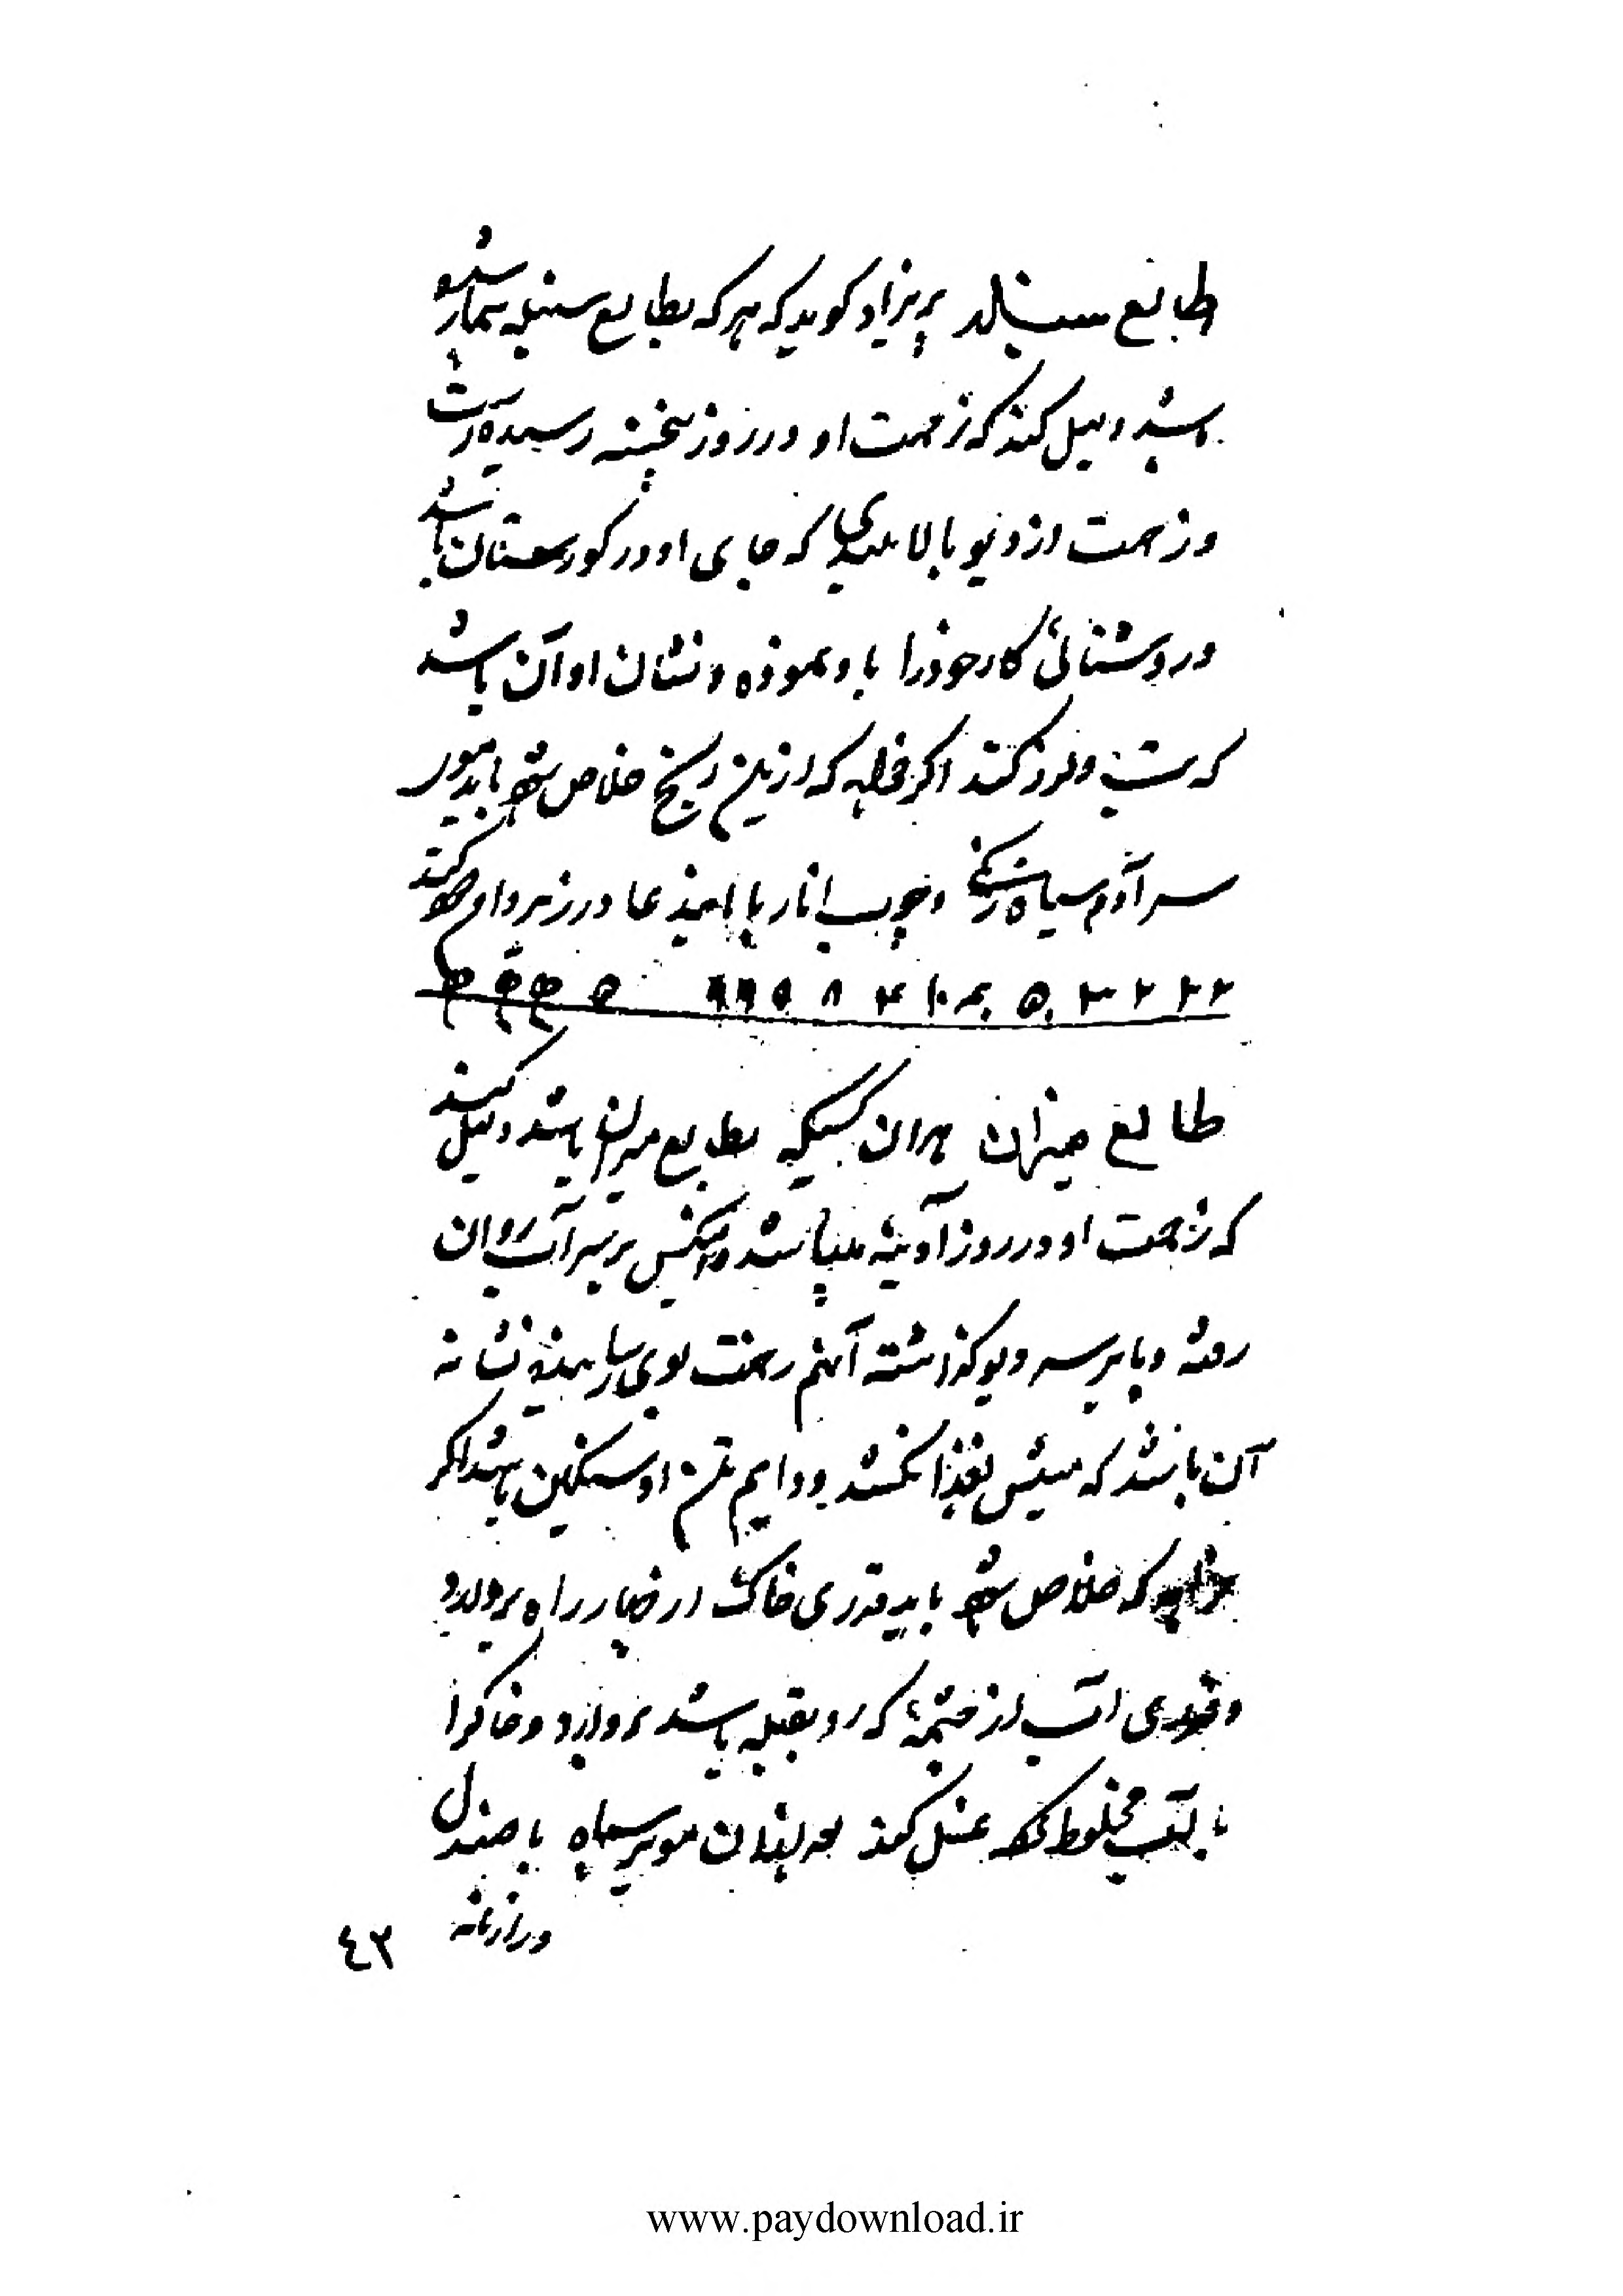 طالع سنبله پریزاد کوید که هر که بطالع سنبله بیمار شود
باشد دلیل کند که زحمت او در روز پنجشنبه رسیده است
و زحمت از دیو بالا بلندی که جای او در کورستان باشد
و روشنائی کار خود را باو نموده و نشان او آن باشد
که تب و لرز کند اکر خواهد که ازین رنج خلاص شود باید موی
سر آدم سیاه زنکی و چوب انار با این دعا در زیر دامن دود کند
۲۲ ۲ ۲ ۳ ۵ ۱۰ ۴ ۸ ۵
طالع میزان هر آن کسیکه بطالع میزان باشد دلیل کند
که زحمت او در روز آدینه میباشد و آنکس بر سر آب روان
رفته و پا بر سر دیو کذاشته آنهم زحمت بوی رسانیده نشانه
آن باشد که میلش بغذا نکشد و دایم تن او سنکین باشد اکر
خواهد که خلاص شود باید قدری خاک از چهار راه بردارد
و قدری آب از چشمهٔ که رو بقبله باشد بردارد و خاکرا
با آب مخلوط کرده غسل کند بعد از آن مویز سیاه با صندل
و رازیانه
٤٣
www.paydownload.ir